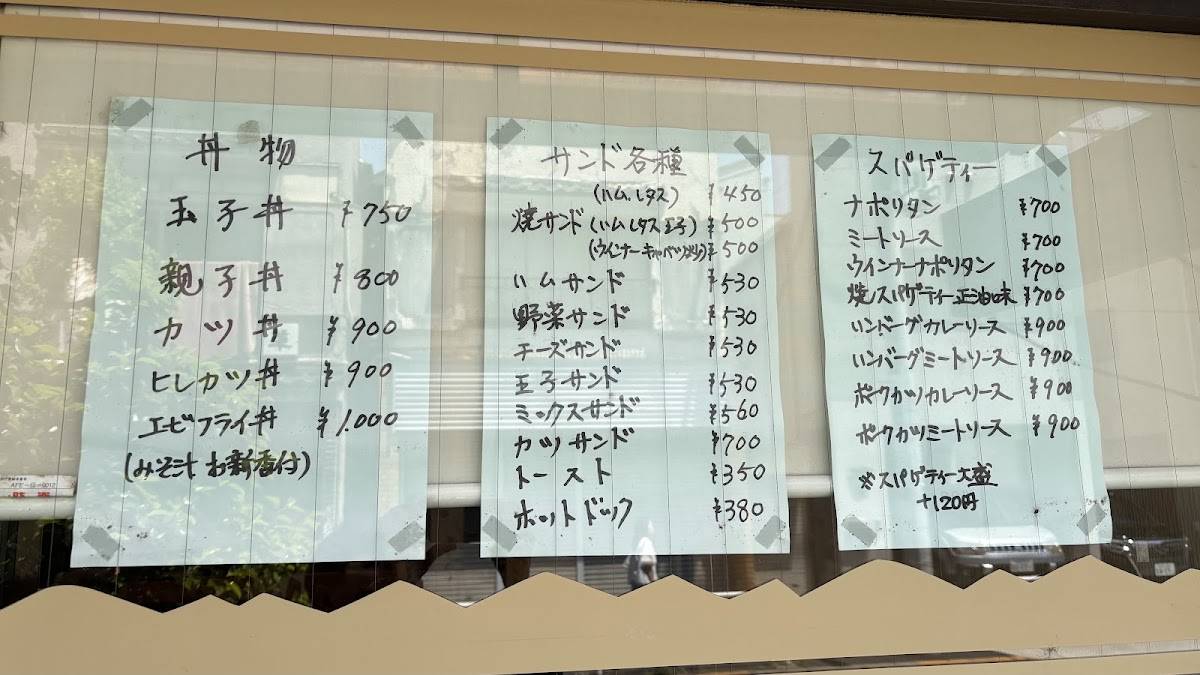 丼物
玉子丼 ¥750
親子丼 ¥800
カツ丼 ¥900
ヒレカツ丼 ¥900
エビフライ丼 ¥1.000
(みそ汁 お新香付)
サンド各種
(ハム.レタス) ¥450
焼サンド(ハムレタス玉子) ¥500
(ウインナーキャベツ入り) ¥500
ハムサンド ¥530
野菜サンド ¥530
チーズサンド ¥530
玉子サンド ¥530
ミックスサンド ¥560
カツサンド ¥700
トースト ¥350
ホットドック ¥380
スパゲティー
ナポリタン ¥700
ミートソース ¥700
ウインナーナポリタン ¥700
焼スパゲティー正油味 ¥700
ハンバーグカレーソース ¥900
ハンバーグミートソース ¥900
ポークカツカレーソース ¥900
ポークカツミートソース ¥900
※スパゲティー大盛
+120円